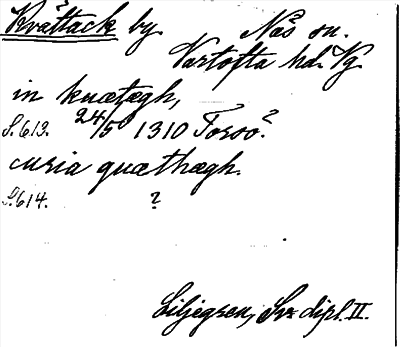 Kvättack by. Näs sn.
Vartofta hd. Vg.
in knætægh,
S. 613. 24/5 1310 Torsö?
curia quæthægh.
S. 614. ?
Liljegren, Sv. dipl. II.